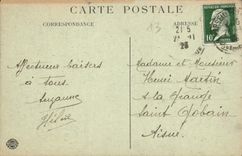 CARTE POSTALE
CORRESPONDANCE
ADRESSE
13
21 5
23
10
Affectueux baisers
à tous.
Suzanne
Madame et Monsieur
Henri Martin
à la
Saint Gobain
Aisne.